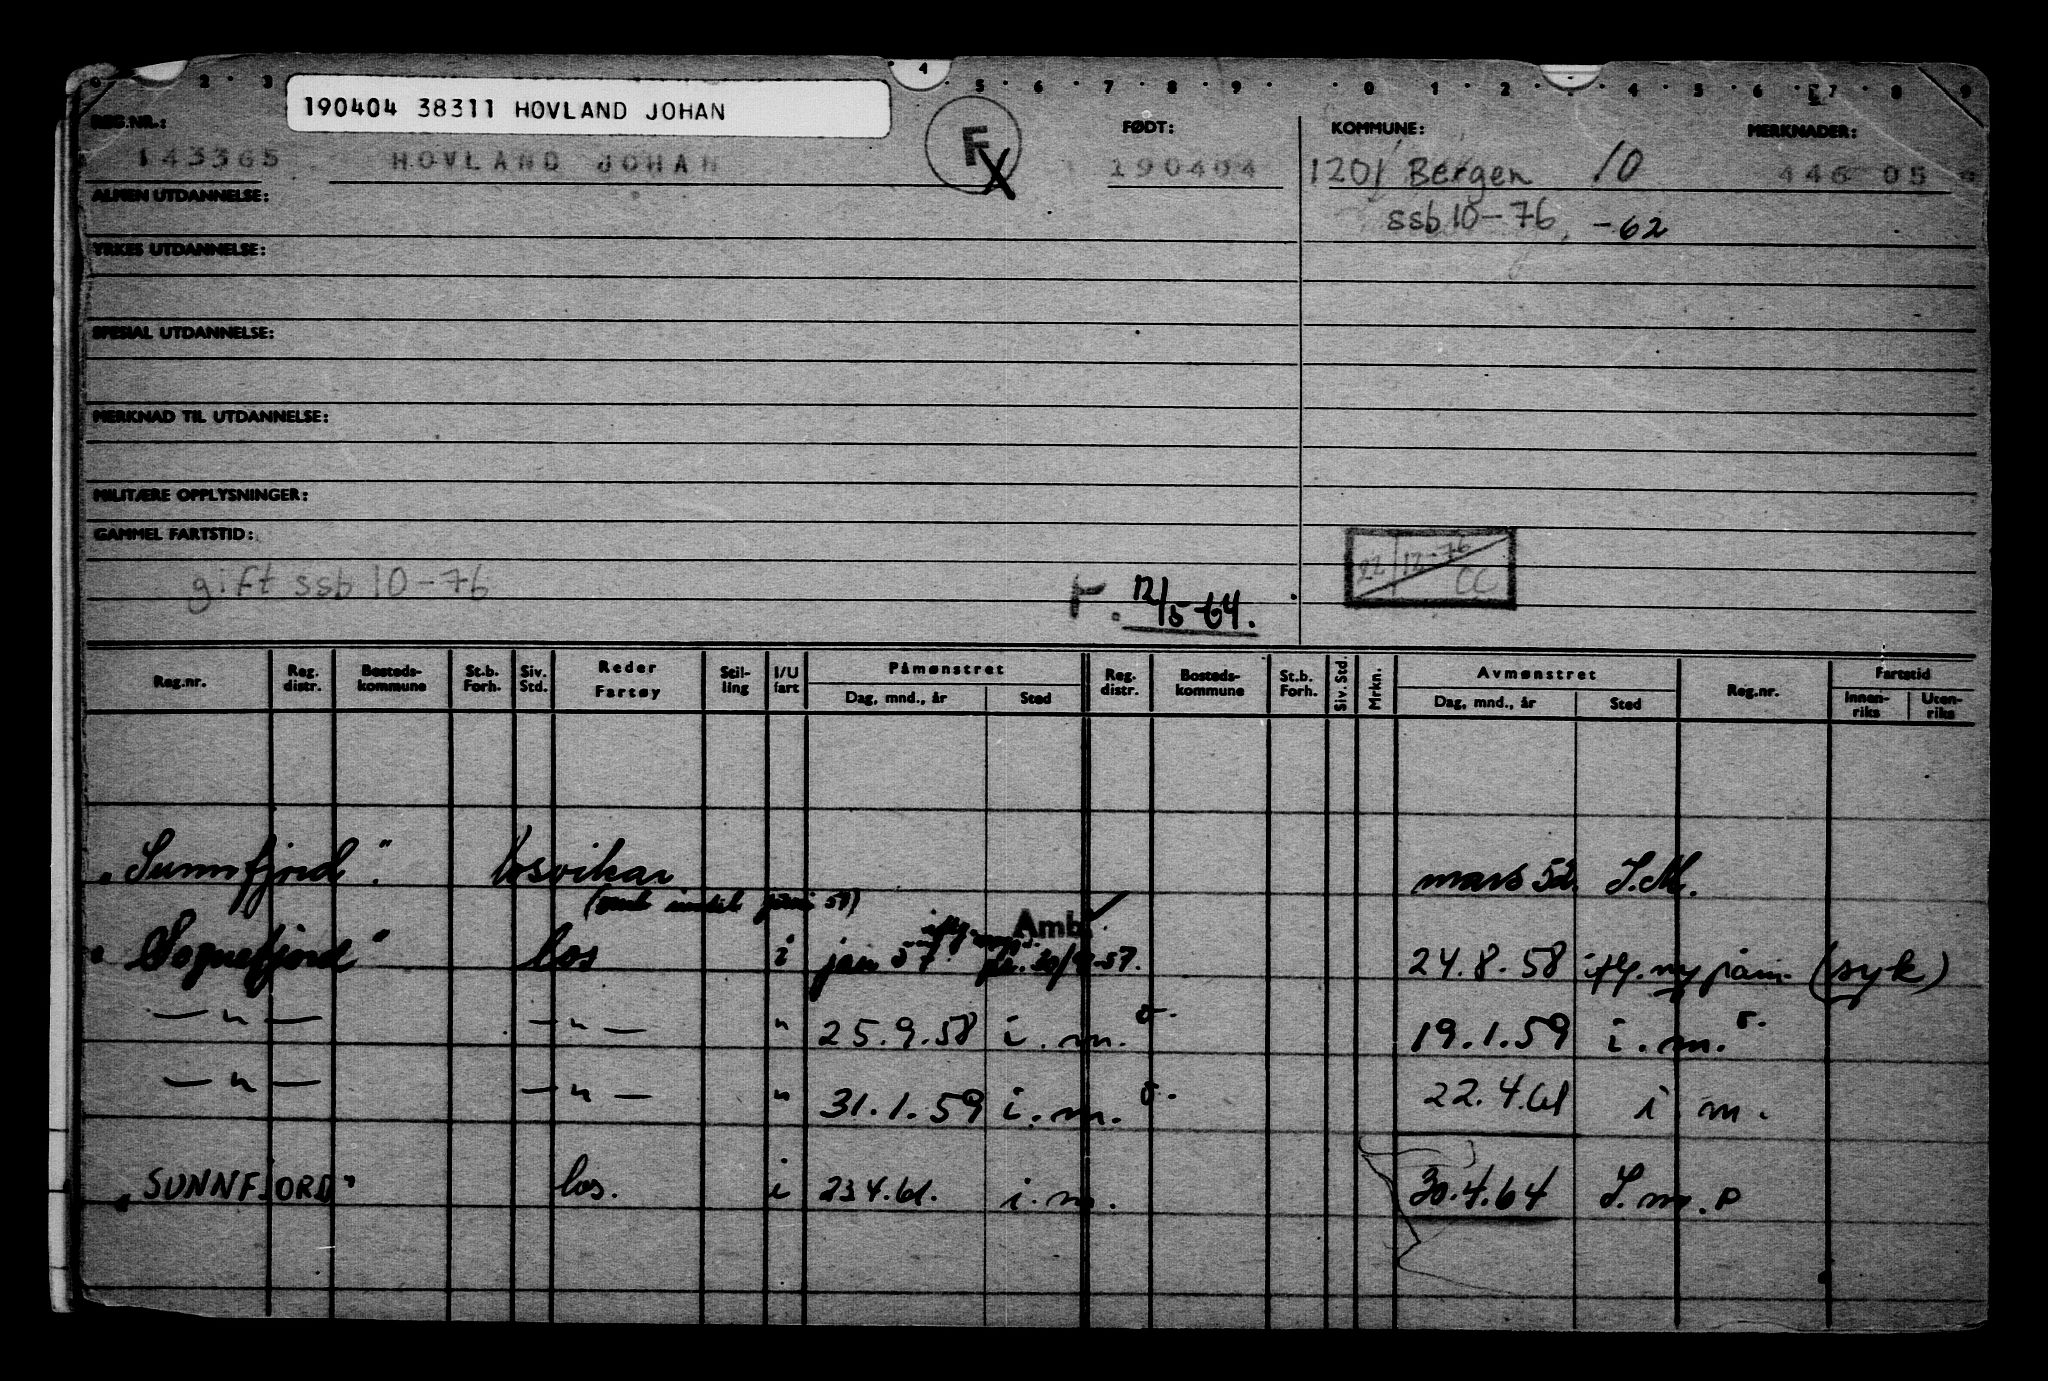 0 2 3 4 5 6 7 8 9 0 1 2 4 5 6 7 8 9
190404 38311 HOVLAND JOHAN
REG.NR.: FØDT: KOMMUNE: MERKNADER:
143365 HOVLAND JOHAN F X 190404 1201 Bergen 10 446 05
ALMEN UTDANNELSE: ssb 10-76, -62
YRKES UTDANNELSE:
SPESIAL UTDANNELSE:
MERKNAD TIL UTDANNELSE:
MILITÆRE OPPLYSNINGER:
GAMMEL FARTSTID:
22/12-76 CC
gift ssb 10-76 12/5-64.
Reg.nr. Reg. distr. Bosteds-kommune St.b. Forh. Siv. Std. Reder Fartøy Stil-ling I/U fart Påmønstret Dag, mnd., år Sted Reg. distr. Bosteds-kommune St.b. Forh. Siv. Std. Mrkn. Avmønstret Dag, mnd., år Sted Reg.nr. Fartstid Innen-riks Uten-riks
"Sunnfjord". losvikar mars 52. I.M.
Amb.
"Sognefjord" los i jan 57 24.8.58 iflg. ny påm. (syk)
— " — — " — " 25.9.58 i.m. 19.1.59 i.m.
— " — — " — " 31.1.59 i.m. 22.4.61 i m.
"SUNNFJORD" los. i 23.4.61. i.m. 30.4.64 I.m.P